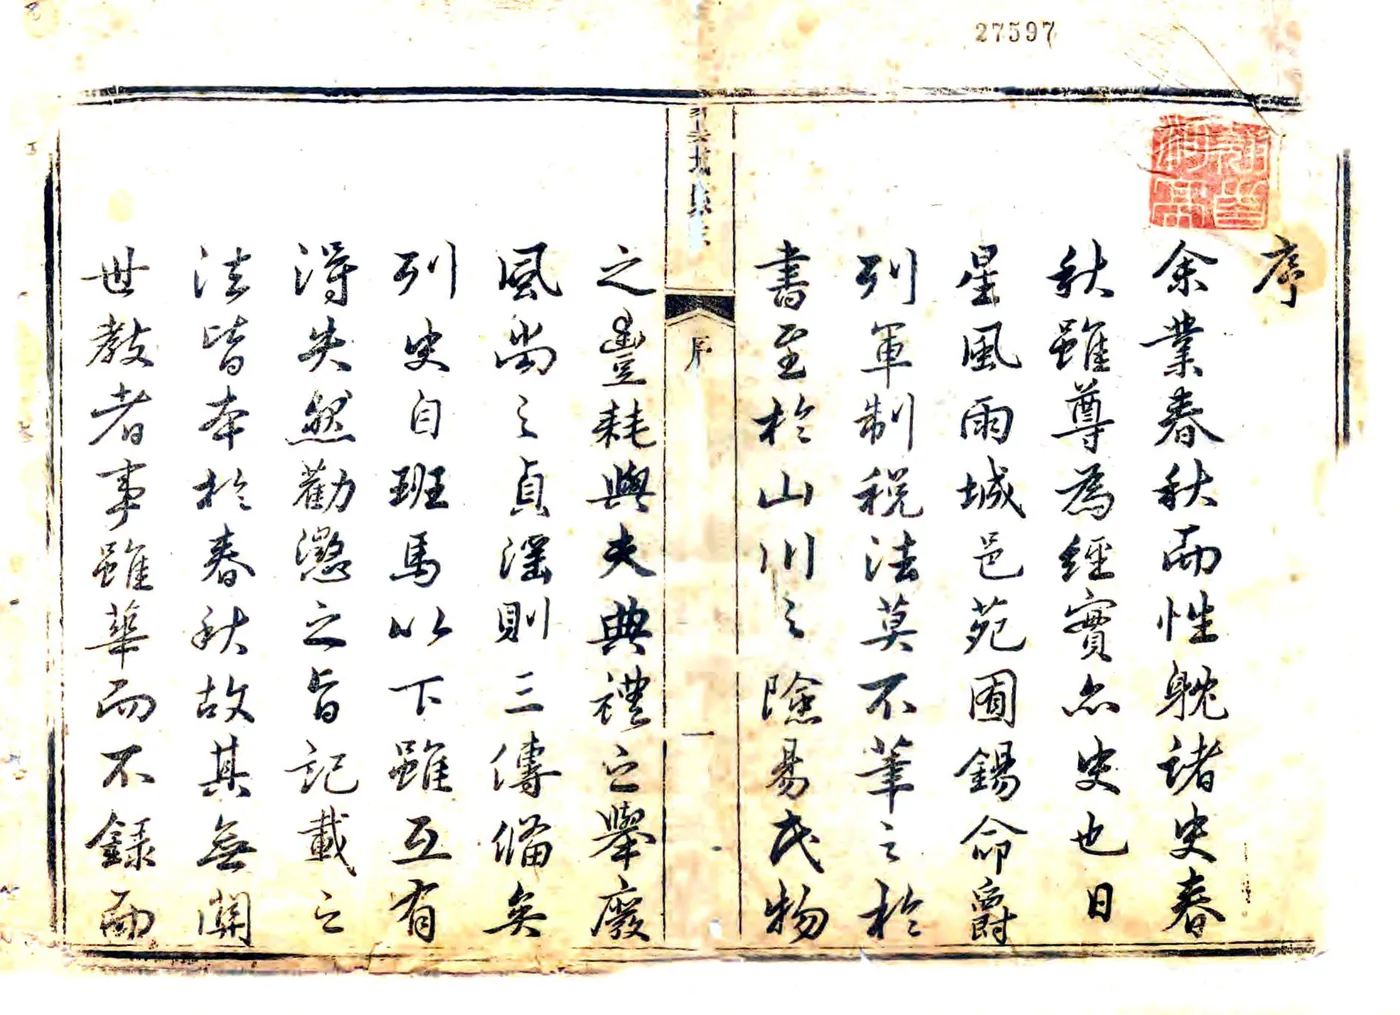 27597
序
余業春秋而性躭諸史春
秋雖尊為經實亦史也日
星風雨城邑苑囿錫命爵
列軍制税法莫不筆之於
書至於山川之險易民物
序
一
之豐耗與夫典禮之舉廢
風尚之貞淫則三傳備矣
列史自班馬以下雖互有
得失然勸懲之旨記載之
法皆本於春秋故其無關
世教者事雖華而不錄而